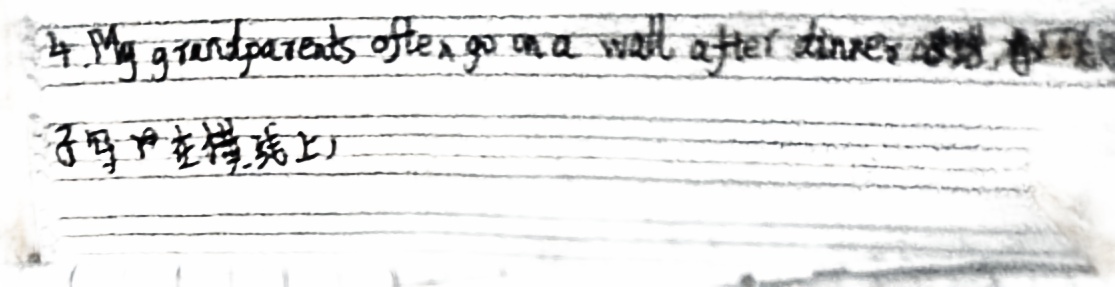 4. My grandparents often go on a wall after dinner
子写户在横线上)